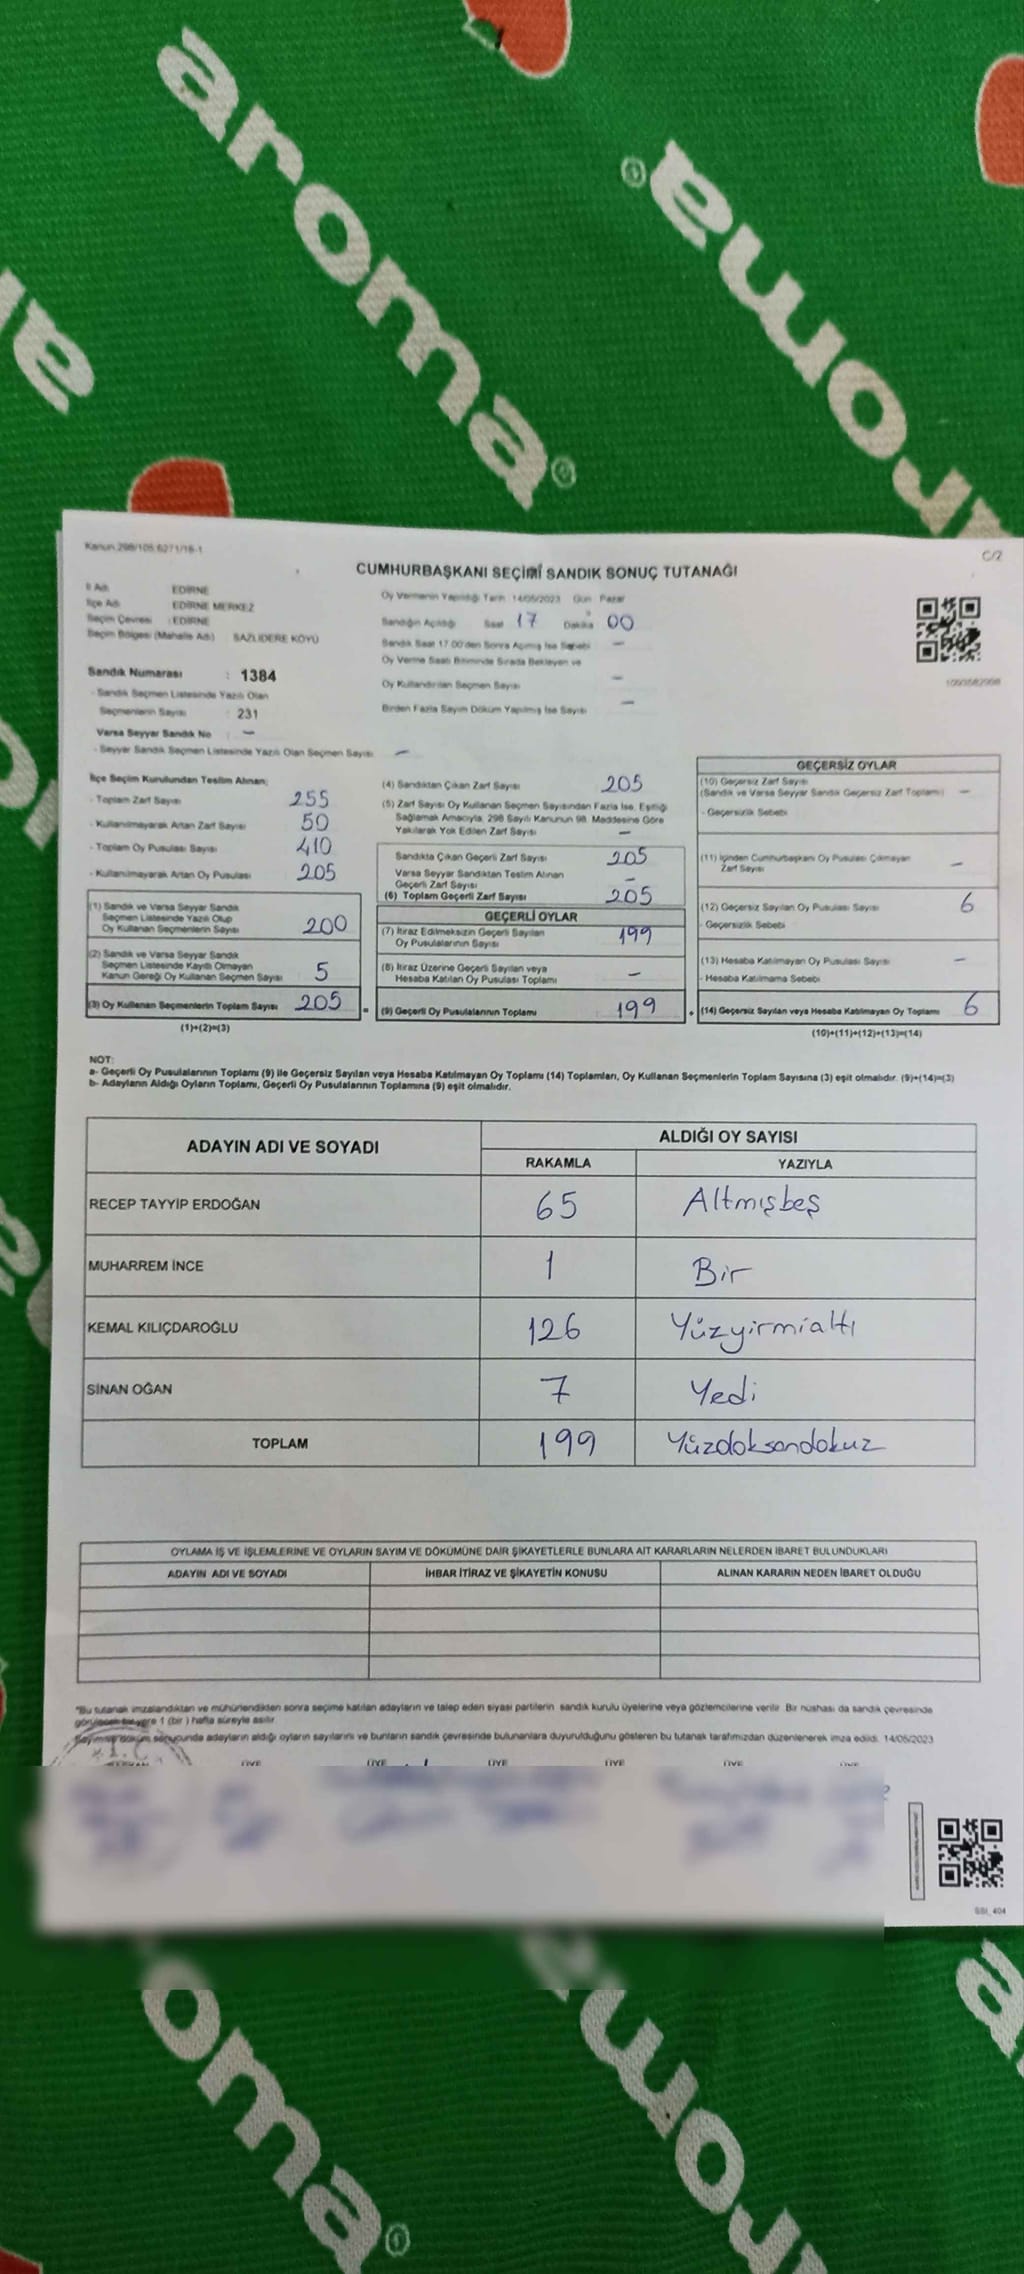 aroma
aroma
Kanun:298/105;6271/16-1
C/2
CUMHURBAŞKANI SEÇİMİ SANDIK SONUÇ TUTANAĞI
İl Adı EDİRNE
İlçe Adı EDİRNE MERKEZ
Seçim Çevresi : EDİRNE
Seçim Bölgesi (Mahalle Adı) SAZLIDERE KÖYÜ
Oy Vermenin Yapıldığı Tarih 14/05/2023 Gün Pazar
Sandığın Açıldığı Saat 17 Dakika 00
Sandık Saat 17.00'den Sonra Açılmış İse Sebebi —
Oy Verme Saati Bitiminde Sırada Bekleyen ve
Oy Kullandırılan Seçmen Sayısı —
Birden Fazla Sayım Döküm Yapılmış İse Sayısı —
Sandık Numarası : 1384
- Sandık Seçmen Listesinde Yazılı Olan
Seçmenlerin Sayısı : 231
Varsa Seyyar Sandık No —
- Seyyar Sandık Seçmen Listesinde Yazılı Olan Seçmen Sayısı —
İlçe Seçim Kurulundan Teslim Alınan;
- Toplam Zarf Sayısı 255
- Kullanılmayarak Artan Zarf Sayısı 50
- Toplam Oy Pusulası Sayısı 410
- Kullanılmayarak Artan Oy Pusulası 205
(1) Sandık ve Varsa Seyyar Sandık
Seçmen Listesinde Yazılı Olup
Oy Kullanan Seçmenlerin Sayısı 200
(2) Sandık ve Varsa Seyyar Sandık
Seçmen Listesinde Kayıtlı Olmayan
Kanun Gereği Oy Kullanan Seçmen Sayısı 5
(3) Oy Kullanan Seçmenlerin Toplam Sayısı 205
(1)+(2)=(3)
(4) Sandıktan Çıkan Zarf Sayısı 205
(5) Zarf Sayısı Oy Kullanan Seçmen Sayısından Fazla İse, Eşitliği
Sağlamak Amacıyla, 298 Sayılı Kanunun 98. Maddesine Göre
Yakılarak Yok Edilen Zarf Sayısı —
Sandıkta Çıkan Geçerli Zarf Sayısı 205
Varsa Seyyar Sandıktan Teslim Alınan
Geçerli Zarf Sayısı —
(6) Toplam Geçerli Zarf Sayısı 205
GEÇERLİ OYLAR
(7) İtiraz Edilmeksizin Geçerli Sayılan
Oy Pusulalarının Sayısı 199
(8) İtiraz Üzerine Geçerli Sayılan veya
Hesaba Katılan Oy Pusulası Toplamı —
= (9) Geçerli Oy Pusulalarının Toplamı 199
GEÇERSİZ OYLAR
(10) Geçersiz Zarf Sayısı
(Sandık ve Varsa Seyyar Sandık Geçersiz Zarf Toplamı) —
- Geçersizlik Sebebi
(11) İçinden Cumhurbaşkanı Oy Pusulası Çıkmayan
Zarf Sayısı —
(12) Geçersiz Sayılan Oy Pusulası Sayısı 6
- Geçersizlik Sebebi
(13) Hesaba Katılmayan Oy Pusulası Sayısı —
- Hesaba Katılmama Sebebi
+ (14) Geçersiz Sayılan veya Hesaba Katılmayan Oy Toplamı 6
(10)+(11)+(12)+(13)=(14)
NOT:
a- Geçerli Oy Pusulalarının Toplamı (9) ile Geçersiz Sayılan veya Hesaba Katılmayan Oy Toplamı (14) Toplamları, Oy Kullanan Seçmenlerin Toplam Sayısına (3) eşit olmalıdır. (9)+(14)=(3)
b- Adayların Aldığı Oyların Toplamı, Geçerli Oy Pusulalarının Toplamına (9) eşit olmalıdır.
ADAYIN ADI VE SOYADI ALDIĞI OY SAYISI
RAKAMLA YAZIYLA
RECEP TAYYİP ERDOĞAN 65 Altmışbeş
MUHARREM İNCE 1 Bir
KEMAL KILIÇDAROĞLU 126 Yüzyirmialtı
SİNAN OĞAN 7 Yedi
TOPLAM 199 Yüzdoksandokuz
OYLAMA İŞ VE İŞLEMLERİNE VE OYLARIN SAYIM VE DÖKÜMÜNE DAİR ŞİKAYETLERLE BUNLARA AİT KARARLARIN NELERDEN İBARET BULUNDUKLARI
ADAYIN ADI VE SOYADI İHBAR İTİRAZ VE ŞİKAYETİN KONUSU ALINAN KARARIN NEDEN İBARET OLDUĞU
*Bu tutanak imzalandıktan ve mühürlendikten sonra seçime katılan adayların ve talep eden siyasi partilerin sandık kurulu üyelerine veya gözlemcilerine verilir. Bir nüshası da sandık çevresinde
görülecek bir yere 1 (bir) hafta süreyle asılır.
Sayım ve döküm sonucunda adayların aldığı oyların sayılarını ve bunların sandık çevresinde bulunanlara duyurulduğunu gösteren bu tutanak tarafımızdan düzenlenerek imza edildi. 14/05/2023
ÜYE ÜYE ÜYE ÜYE ÜYE ÜYE
SSI_404
aroma